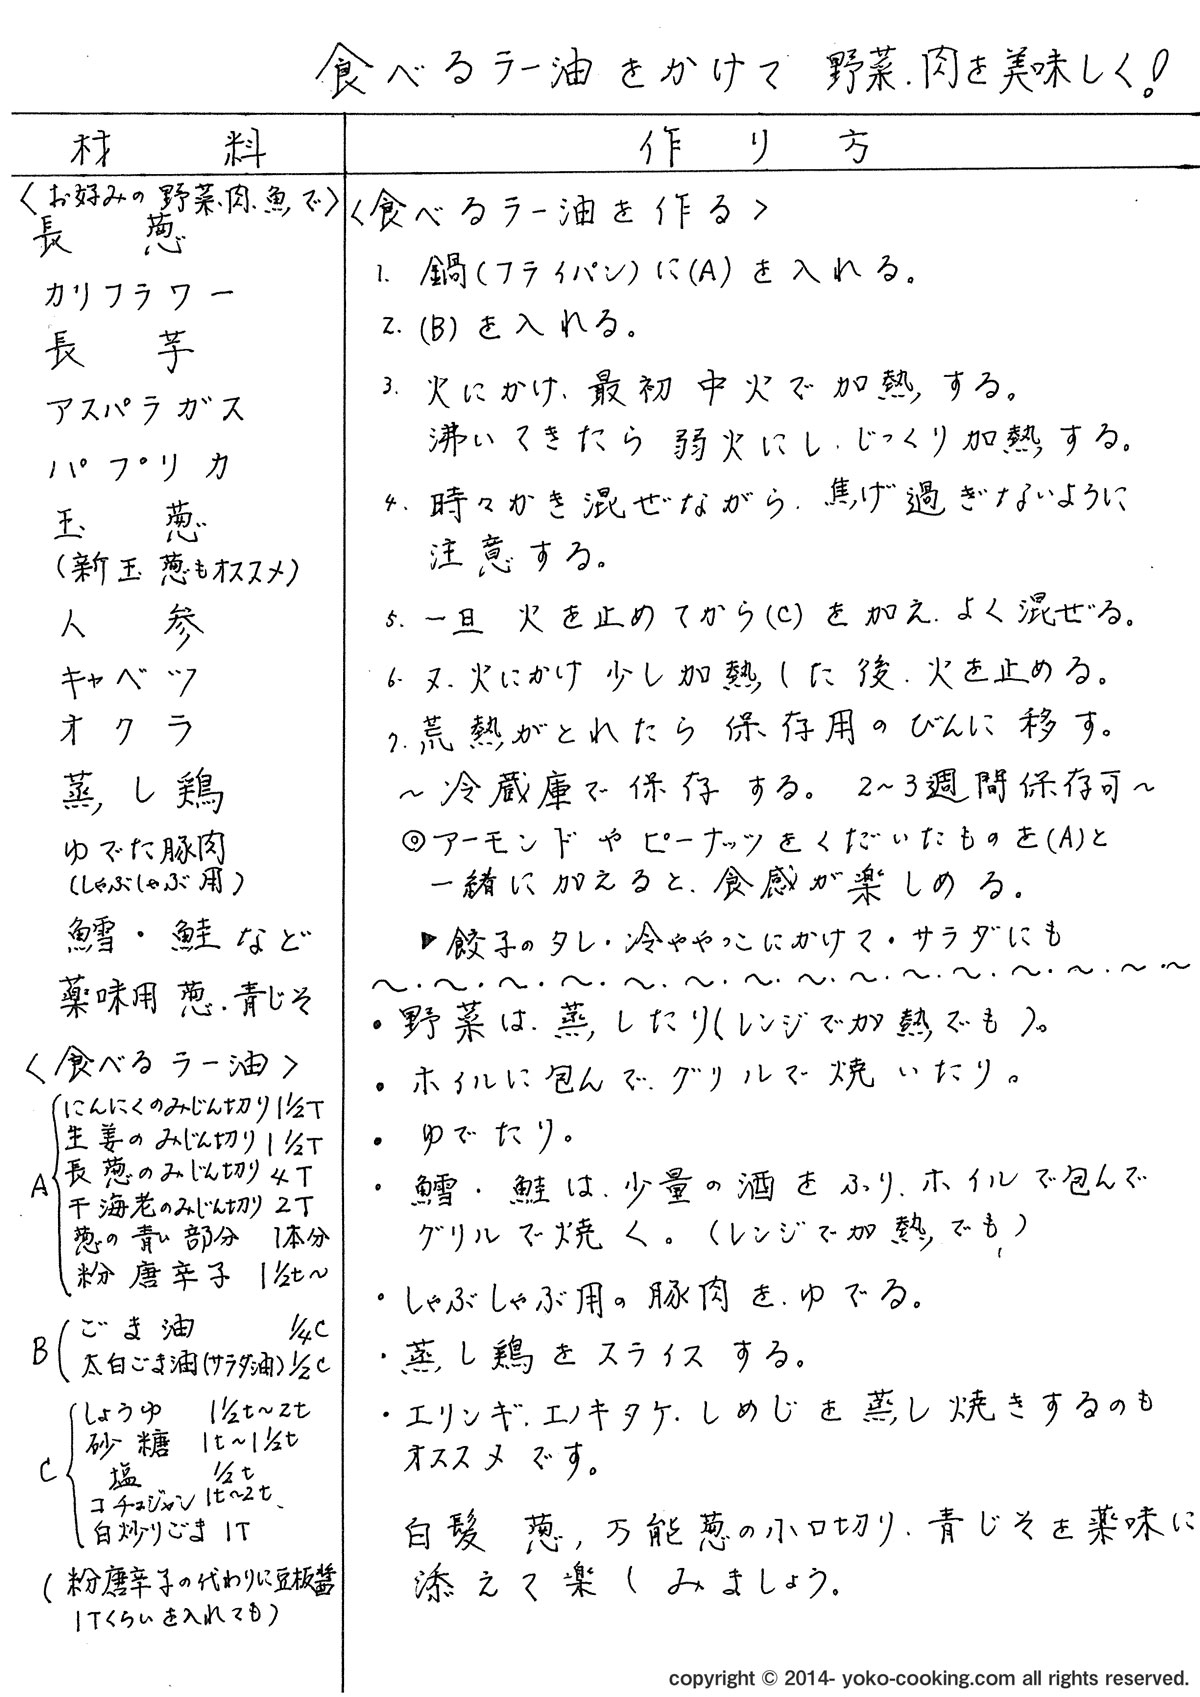 食べるラー油をかけて 野菜、肉を美味しく!
材料
作り方
〈お好みの野菜、肉、魚で〉
長葱
カリフラワー
長芋
アスパラガス
パプリカ
玉葱
(新玉葱もオススメ)
人参
キャベツ
オクラ
蒸し鶏
ゆでた豚肉
(しゃぶしゃぶ用)
鱈・鮭など
薬味用 葱、青じそ
〈食べるラー油〉
A
にんにくのみじん切り 1 1/2T
生姜のみじん切り 1 1/2T
長葱のみじん切り 4T
干海老のみじん切り 2T
葱の青い部分 1本分
粉唐辛子 1 1/2t〜
B
ごま油 1/4C
太白ごま油(サラダ油) 1/2C
C
しょうゆ 1 1/2t〜2t
砂糖 1t〜1 1/2t
塩 1/2t
コチュジャン 1t〜2t
白炒りごま 1T
(粉唐辛子の代わりに豆板醤
1Tくらいを入れても)
〈食べるラー油を作る〉
1. 鍋(フライパン)に(A)を入れる。
2. (B)を入れる。
3. 火にかけ、最初中火で加熱する。
沸いてきたら弱火にし、じっくり加熱する。
4. 時々かき混ぜながら、焦げ過ぎないように
注意する。
5. 一旦 火を止めてから(C)を加え、よく混ぜる。
6. 又、火にかけ少し加熱した後、火を止める。
7. 荒熱がとれたら保存用のびんに移す。
〜冷蔵庫で保存する。 2〜3週間保存可〜
◎アーモンドやピーナッツをくだいたものを(A)と
一緒に加えると、食感が楽しめる。
▶餃子のタレ・冷ややっこにかけて・サラダにも
〜・〜・〜・〜・〜・〜・〜・〜・〜・〜・〜・〜・〜・〜
・野菜は、蒸したり(レンジで加熱でも)。
・ホイルに包んで、グリルで焼いたり。
・ゆでたり。
・鱈・鮭は、少量の酒をふり、ホイルで包んで
グリルで焼く。(レンジで加熱でも)
・しゃぶしゃぶ用の豚肉を、ゆでる。
・蒸し鶏をスライスする。
・エリンギ、エノキタケ、しめじを蒸し焼きするのも
オススメです。
白髪葱、万能葱の小口切り、青じそを薬味に
添えて楽しみましょう。
copyright © 2014- yoko-cooking.com all rights reserved.